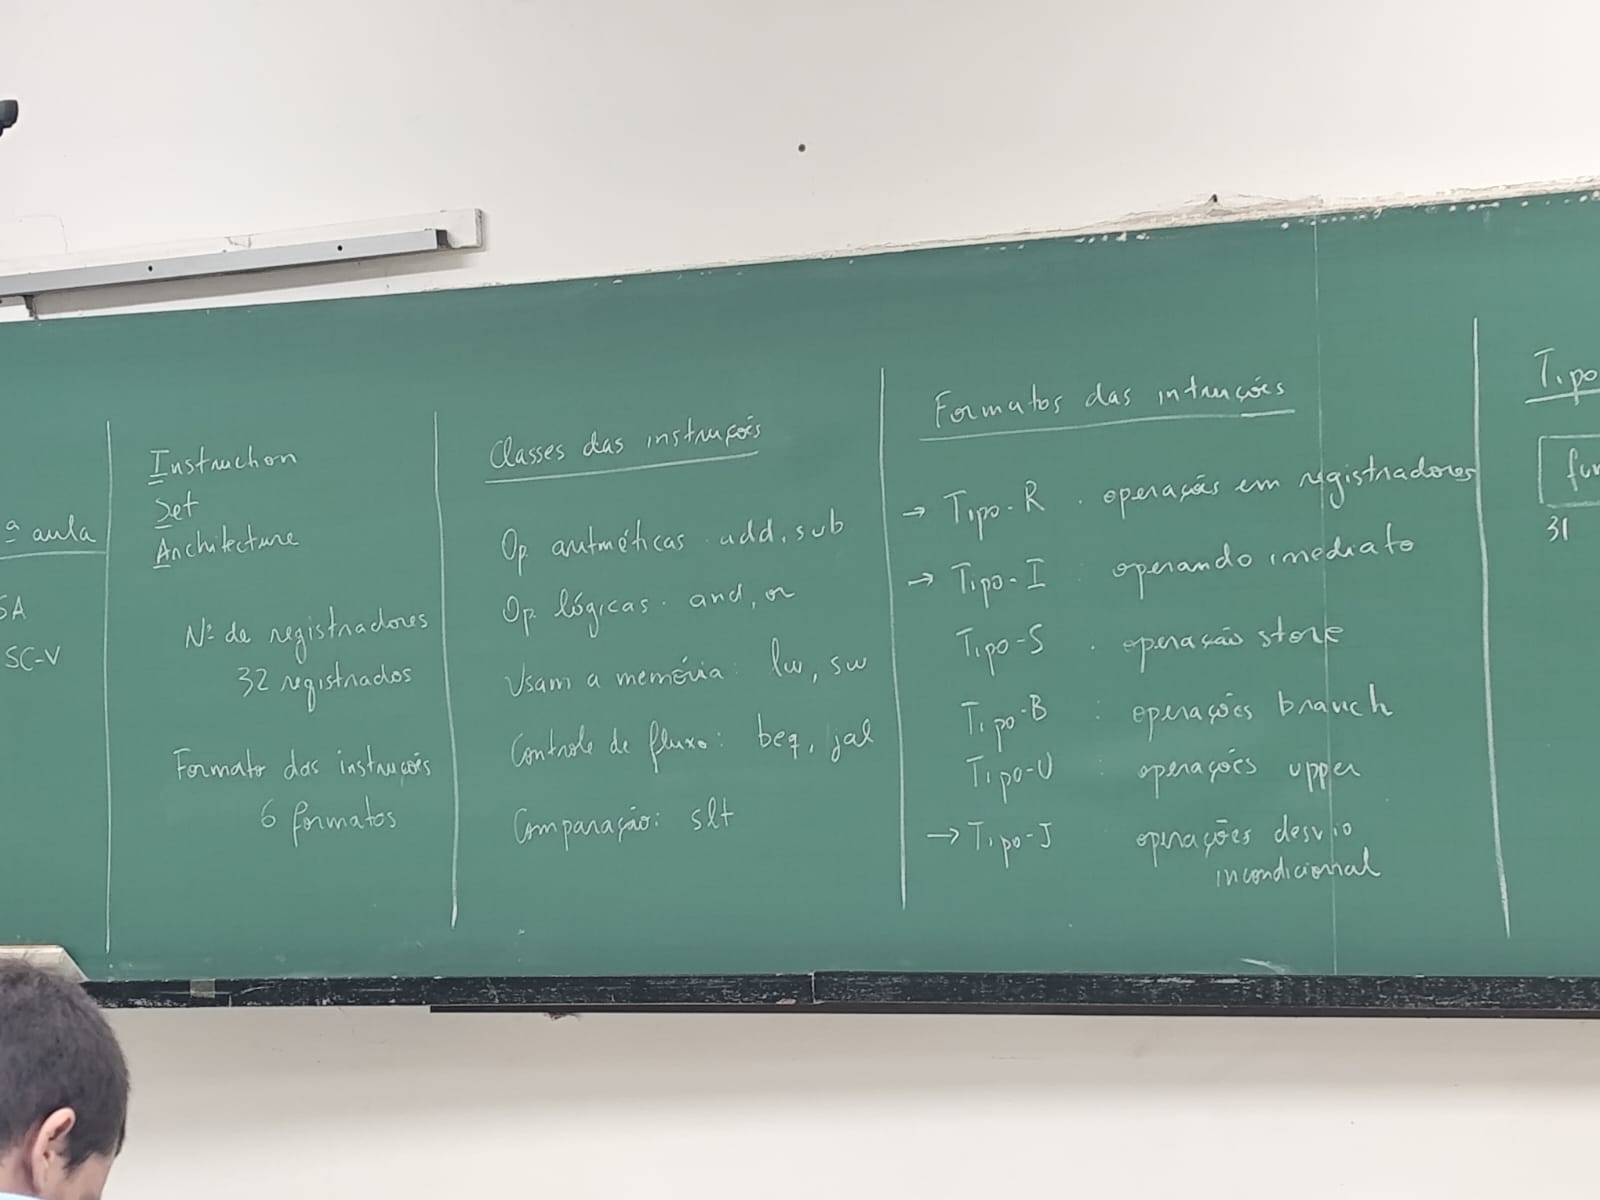 ª aula
SA
SC-V
Instruction
Set
Architecture
Nº de registradores
32 registrados
Formato das instruções
6 formatos
Classes das instruções
Op aritméticas. add, sub
Op lógicas. and, or
Usam a memória: lw, sw
Controle de fluxo: beq, jal
Comparação: slt
Formatos das intruções
→ Tipo-R . operações em registradores
→ Tipo-I : operando imediato
Tipo-S . operação store
Tipo-B : operações branch
Tipo-U : operações upper
→ Tipo-J operações desvio
incondicional
Tipo
fun
31